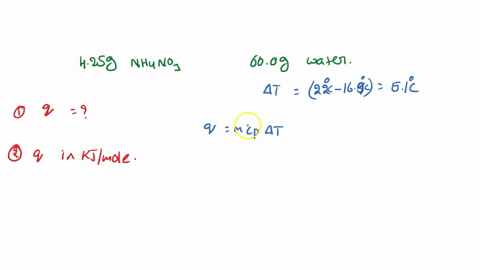 4.25g NH4NO3 60.0g water.
ΔT = (22°C-16.9°C) = 5.1°C
① q = ?
q = mcp ΔT
② q in KJ/mole.